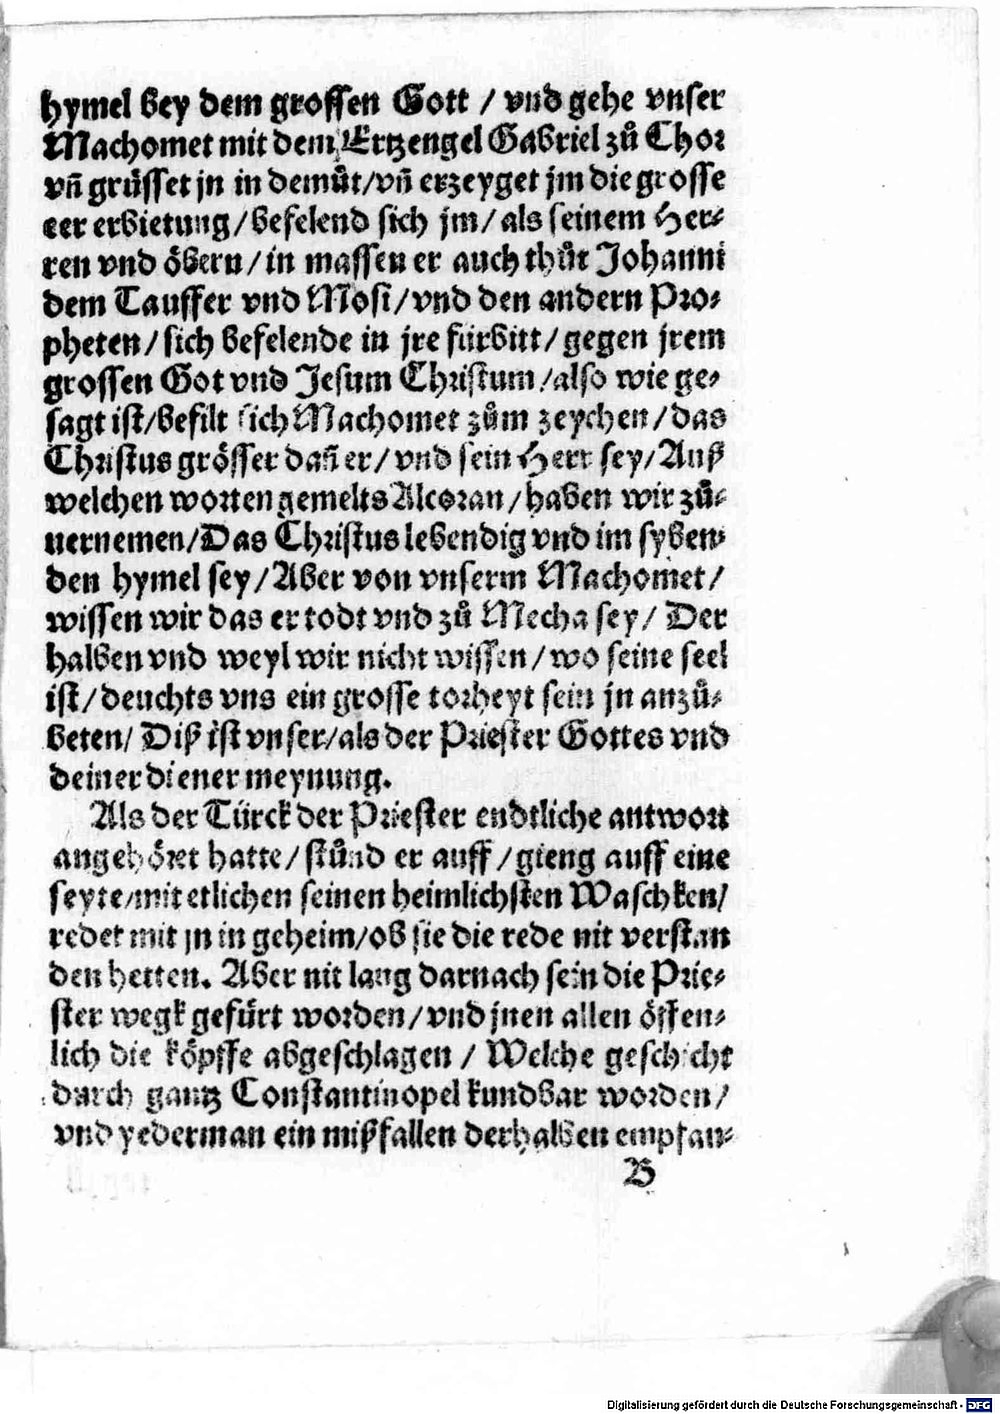 hymel bey dem grossen Gott / vnd gehe vnser
Machomet mit dem Ertzengel Gabriel zů Chor
vñ grüsset jn in demůt/vñ erzeyget jm die grosse
eer erbietung/befelend sich jm/als seinem Her-
ren vnd öbern/in massen er auch thůt Johanni
dem Tauffer vnd Mosi/vnd den andern Pro-
pheten/sich befelende in jre fürbitt/gegen jrem
grossen Got vnd Jesum Christum/also wie ge-
sagt ist/befilt sich Machomet zům zeychen/das
Christus grösser dañ er/vnd sein Herr sey/Auß
welchen worten gemelts Alcoran/haben wir zů-
uernemen/Das Christus lebendig vnd im syben-
den hymel sey/Aber von vnserm Machomet/
wissen wir das er todt vnd zů Mecha sey/ Der
halben vnd weyl wir nicht wissen/wo seine seel
ist/deuchts vns ein grosse torheyt sein jn anzů-
beten/ Diß ist vnser/als der Priester Gottes vnd
deiner diener meynung.
Als der Türck der Priester endtliche antwort
angehöret hatte/stůnd er auff/gieng auff eine
seyte/mit etlichen seinen heimlichsten Waschken/
redet mit jn in geheim/ob sie die rede nit verstan
den hetten. Aber nit lang darnach sein die Prie-
ster wegk gefürt worden/vnd jnen allen öffen-
lich die köpffe abgeschlagen / Welche geschicht
durch gantz Constantinopel kundbar worden/
vnd yederman ein mißfallen derhalben empfan-
B
Digitalisierung gefördert durch die Deutsche Forschungsgemeinschaft - DFG